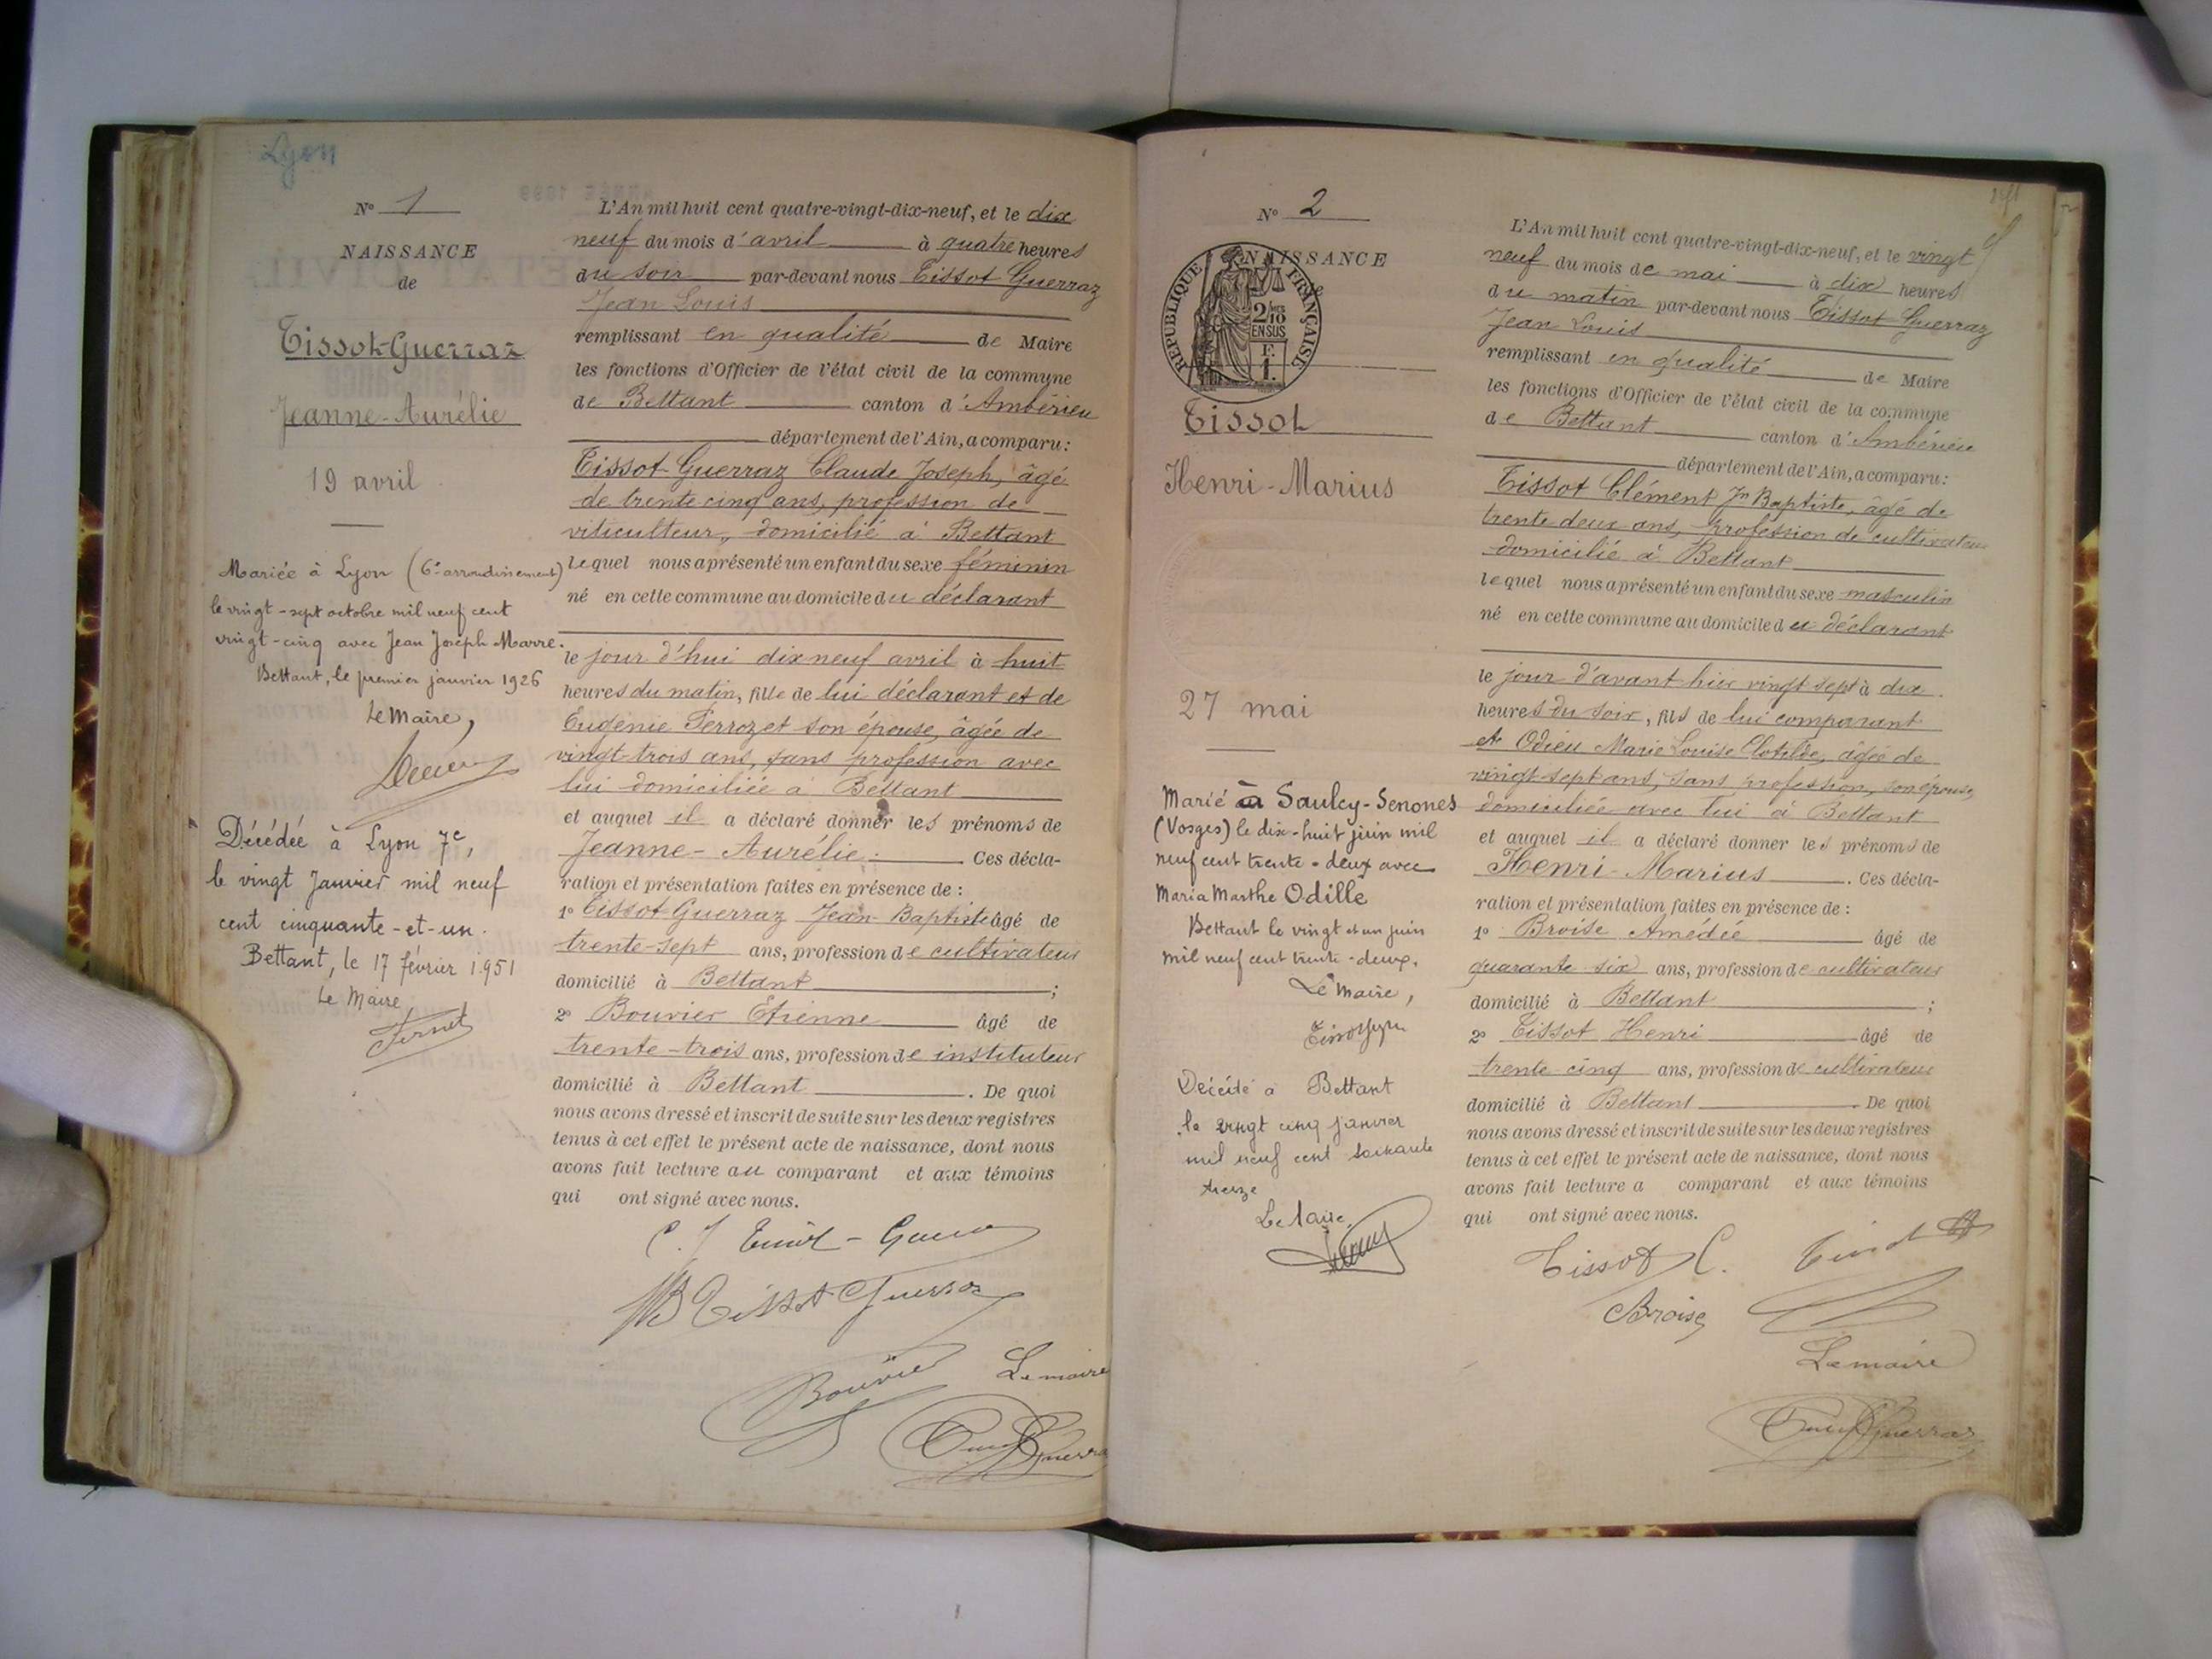 Lyon
N° 1
NAISSANCE
de
Tissot-Guerraz
Jeanne-Aurélie
19 avril
Mariée à Lyon (6e arrondissement)
le vingt-sept octobre mil neuf cent
vingt-cinq avec Jean Joseph Marre.
Bettant, le premier janvier 1926
Le Maire,
Décédée à Lyon 7e,
le vingt Janvier mil neuf
cent cinquante-et-un.
Bettant, le 17 février 1951
Le Maire
L'An mil huit cent quatre-vingt-dix-neuf, et le dix
neuf du mois d'avril à quatre heures
du soir par-devant nous Tissot Guerraz
Jean Louis
remplissant en qualité de Maire
les fonctions d'Officier de l'état civil de la commune
de Bettant canton d'Ambérieu
département de l'Ain, a comparu:
Tissot-Guerraz Claude Joseph, âgé
de trente cinq ans, profession de
viticulteur, domicilié à Bettant
lequel nous a présenté un enfant du sexe féminin
né en cette commune au domicile du déclarant
le jour d'hui dix neuf avril à huit
heures du matin, fille de lui déclarant et de
Eugénie Perrozet son épouse, âgée de
vingt-trois ans, sans profession avec
lui domiciliée à Bettant
et auquel il a déclaré donner les prénoms de
Jeanne-Aurélie. Ces décla-
ration et présentation faites en présence de :
1° Tissot Guerraz Jean-Baptiste âgé de
trente-sept ans, profession de cultivateur
domicilié à Bettant ;
2° Bouvier Etienne âgé de
trente-trois ans, profession de instituteur
domicilié à Bettant . De quoi
nous avons dressé et inscrit de suite sur les deux registres
tenus à cet effet le présent acte de naissance, dont nous
avons fait lecture au comparant et aux témoins
qui ont signé avec nous.
C. J Tissot-Guerraz
JB Tissot Guerraz
Bouvier Le maire
Tissot Guerraz
N° 2
NAISSANCE
de
RÉPUBLIQUE FRANÇAISE
2/10 EN SUS
F. 1.
Tissot
Henri-Marius
27 mai
Marié à Saulcy-Senones
(Vosges) le dix-huit juin mil
neuf cent trente-deux avec
Maria Marthe Odille
Bettant le vingt et un juin
mil neuf cent trente-deux.
Le maire,
Décédé à Bettant
le vingt cinq janvier
mil neuf cent soixante
treize
Le Maire,
L'An mil huit cent quatre-vingt-dix-neuf, et le vingt
neuf du mois de mai à dix heures
du matin par-devant nous Tissot Guerraz
Jean Louis
remplissant en qualité de Maire
les fonctions d'Officier de l'état civil de la commune
de Bettant canton d'Ambérieu
département de l'Ain, a comparu:
Tissot Clément Jn Baptiste, âgé de
trente deux ans, profession de cultivateur
domicilié à Bettant
lequel nous a présenté un enfant du sexe masculin
né en cette commune au domicile du déclarant
le jour d'avant hier vingt sept à dix
heures du soir, fils de lui comparant
et Odieu Marie Louise Clotilde, âgée de
vingt-sept ans, sans profession, son épouse,
domiciliée avec lui à Bettant
et auquel il a déclaré donner les prénoms de
Henri-Marius . Ces décla-
ration et présentation faites en présence de :
1° Broise Amédée âgé de
quarante six ans, profession de cultivateur
domicilié à Bettant ;
2° Tissot Henri âgé de
trente cinq ans, profession de cultivateur
domicilié à Bettant . De quoi
nous avons dressé et inscrit de suite sur les deux registres
tenus à cet effet le présent acte de naissance, dont nous
avons fait lecture a comparant et aux témoins
qui ont signé avec nous.
Tissot C. Tissot H
Broise
Le maire
Tissot Guerraz